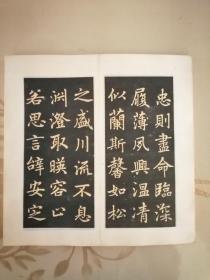 忠則盡命臨深
履薄夙興温凊
似蘭斯馨如松
之盛川流不息
渊澄取暎容止
若思言辝安定